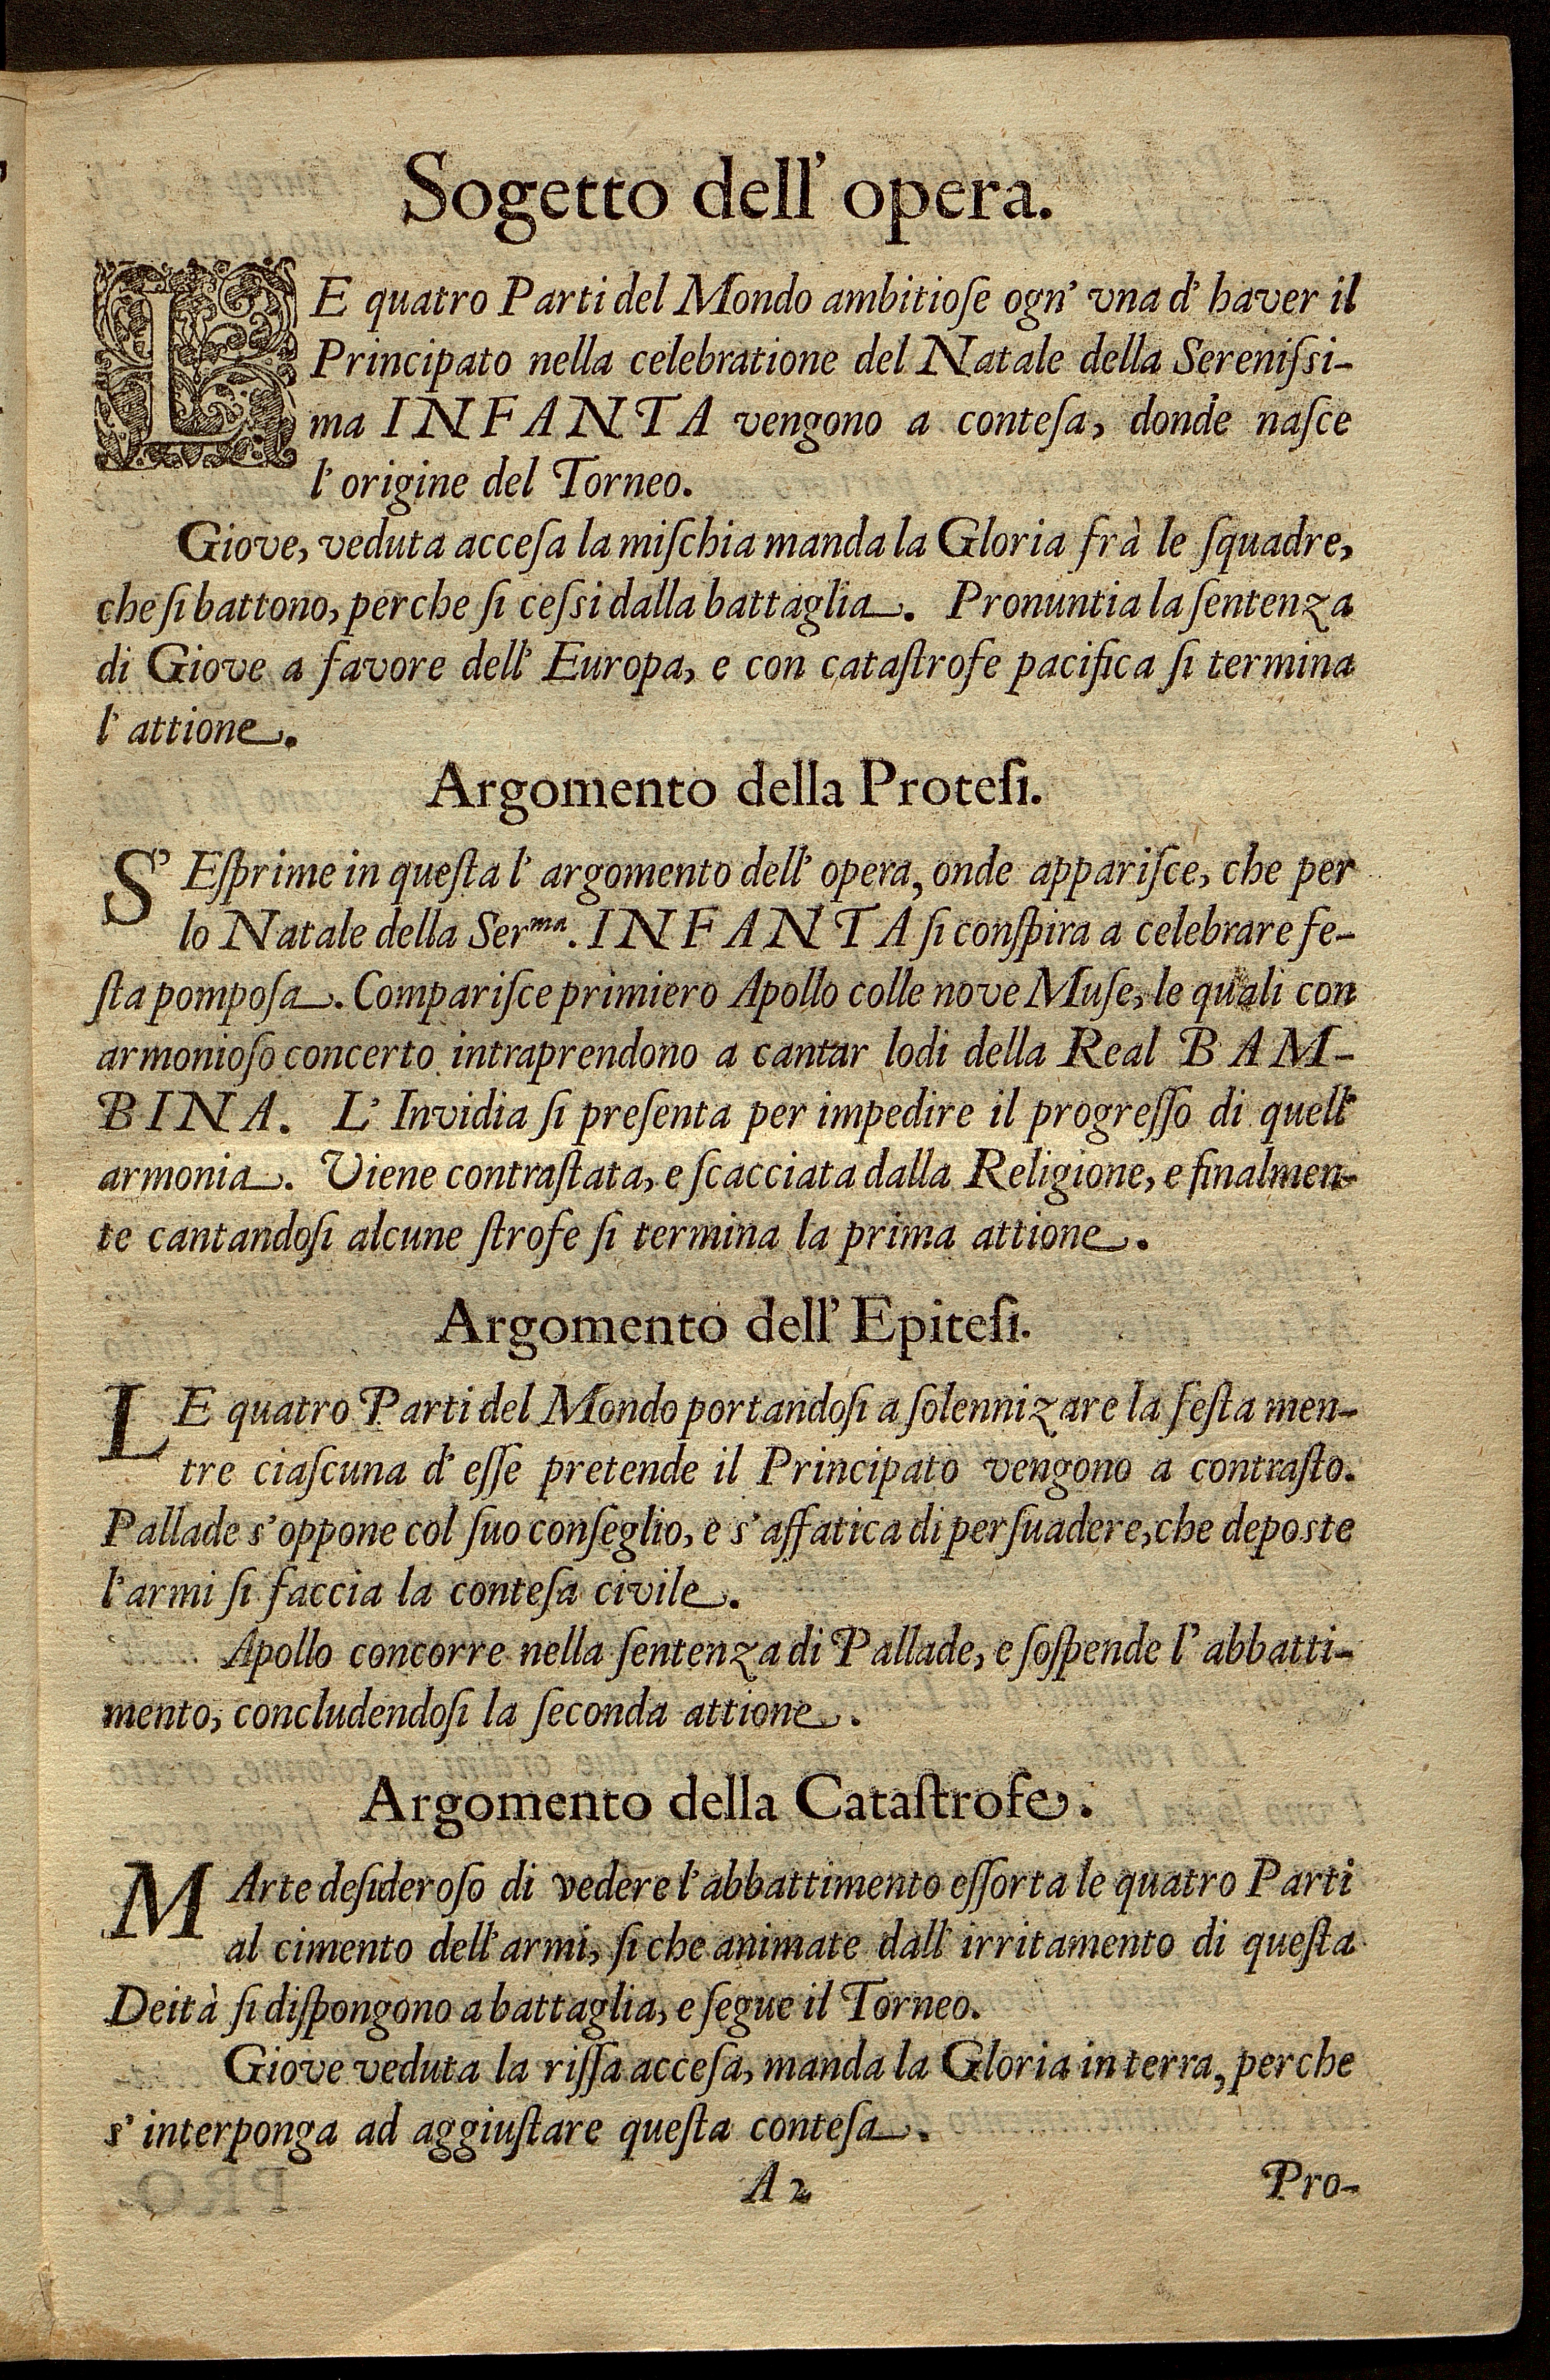 Sogetto dell' opera.
LE quatro Parti del Mondo ambitioſe ogn' vna d' haver il
Principato nella celebratione del Natale della Sereniſsi-
ma INFANTA vengono a conteſa, donde naſce
l' origine del Torneo.
Giove, veduta acceſa la miſchia manda la Gloria frà le ſquadre,
che ſi battono, perche ſi ceſsi dalla battaglia. Pronuntia la ſentenza
di Giove a favore dell' Europa, e con cataſtrofe pacifica ſi termina
l' attione.
Argomento della Proteſi.
S' Eſprime in queſta l' argomento dell' opera, onde appariſce, che per
lo Natale della Ser.ᵐᵃ. INFANTA ſi conſpira a celebrare fe-
ſta pompoſa. Compariſce primiero Apollo colle nove Muſe, le quali con
armonioſo concerto intraprendono a cantar lodi della Real BAM-
BINA. L' Invidia ſi preſenta per impedire il progreſſo di quell'
armonia. Viene contraſtata, e ſcacciata dalla Religione, e finalmen-
te cantandoſi alcune ſtrofe ſi termina la prima attione.
Argomento dell' Epiteſi.
LE quatro Parti del Mondo portandoſi a ſolennizare la feſta men-
tre ciaſcuna d' eſſe pretende il Principato vengono a contraſto.
Pallade s' oppone col ſuo conſeglio, e s' affatica di perſuadere, che deposte
l' armi ſi faccia la conteſa civile.
Apollo concorre nella ſentenza di Pallade, e ſoſpende l' abbatti-
mento, concludendoſi la ſeconda attione.
Argomento della Cataſtrofe.
MArte deſideroſo di vedere l' abbattimento eſſorta le quatro Parti
al cimento dell' armi, ſi che animate dall' irritamento di queſta
Deità ſi diſpongono a battaglia, e ſegue il Torneo.
Giove veduta la riſſa acceſa, manda la Gloria in terra, perche
s' interponga ad aggiuſtare queſta conteſa.
A 2
Pro-